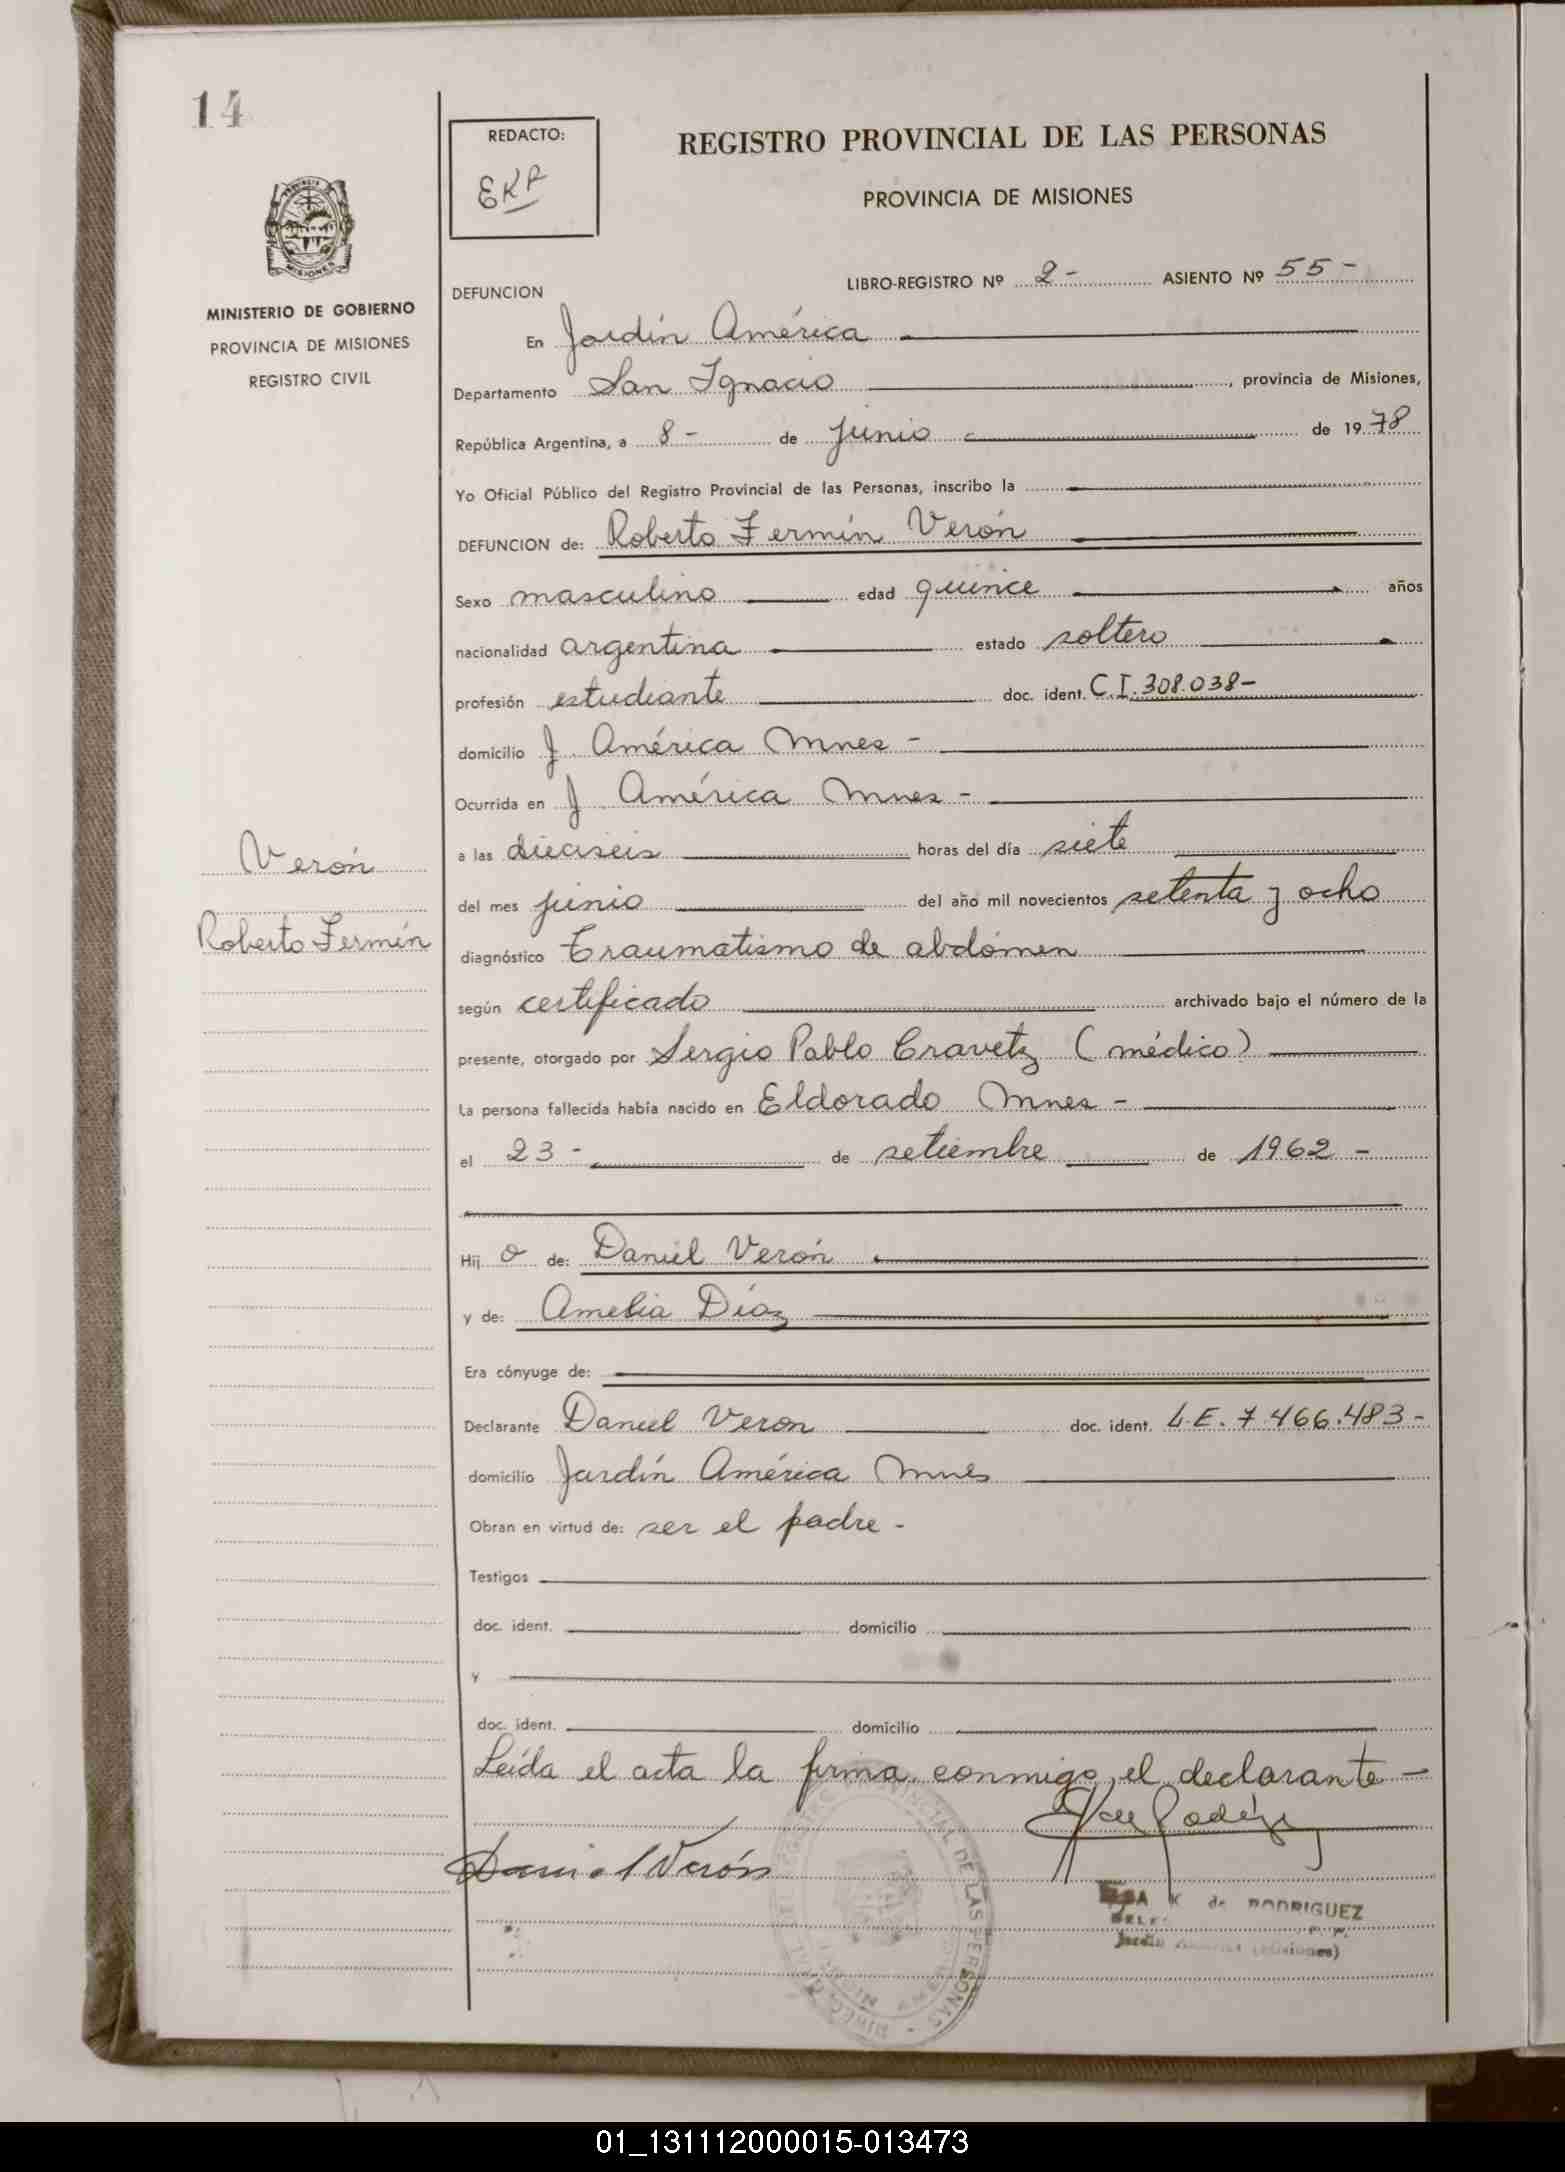 14
REDACTO:
EKR
REGISTRO PROVINCIAL DE LAS PERSONAS
PROVINCIA DE MISIONES
MINISTERIO DE GOBIERNO
PROVINCIA DE MISIONES
REGISTRO CIVIL
DEFUNCION
LIBRO-REGISTRO Nº 2- ASIENTO Nº 55-
En Jardín América
Departamento San Ignacio, provincia de Misiones,
República Argentina, a 8- de junio de 1978
Yo Oficial Público del Registro Provincial de las Personas, inscribo la
DEFUNCION de: Roberto Fermín Verón
Sexo masculino edad quince años
nacionalidad argentina estado soltero
profesión estudiante doc. ident. C.I. 308.038-
domicilio J. América Mnes-
Ocurrida en J. América Mnes-
a las dieciseis horas del día siete
del mes junio del año mil novecientos setenta y ocho
diagnóstico Traumatismo de abdómen
según certificado archivado bajo el número de la
presente, otorgado por Sergio Pablo Cravetz (médico)
La persona fallecida había nacido en Eldorado Mnes-
el 23- de setiembre de 1962-
Hijo de: Daniel Verón
y de: Amelia Díaz
Era cónyuge de:
Declarante Daniel Veron doc. ident. L.E. 7.466.483-
domicilio Jardín América Mnes
Obran en virtud de: ser el padre-
Testigos
doc. ident. domicilio
y
doc. ident. domicilio
Leída el acta la firma conmigo, el declarante-
Daniel Verón
K de RODRIGUEZ
Verón
Roberto Fermín
01_131112000015-013473